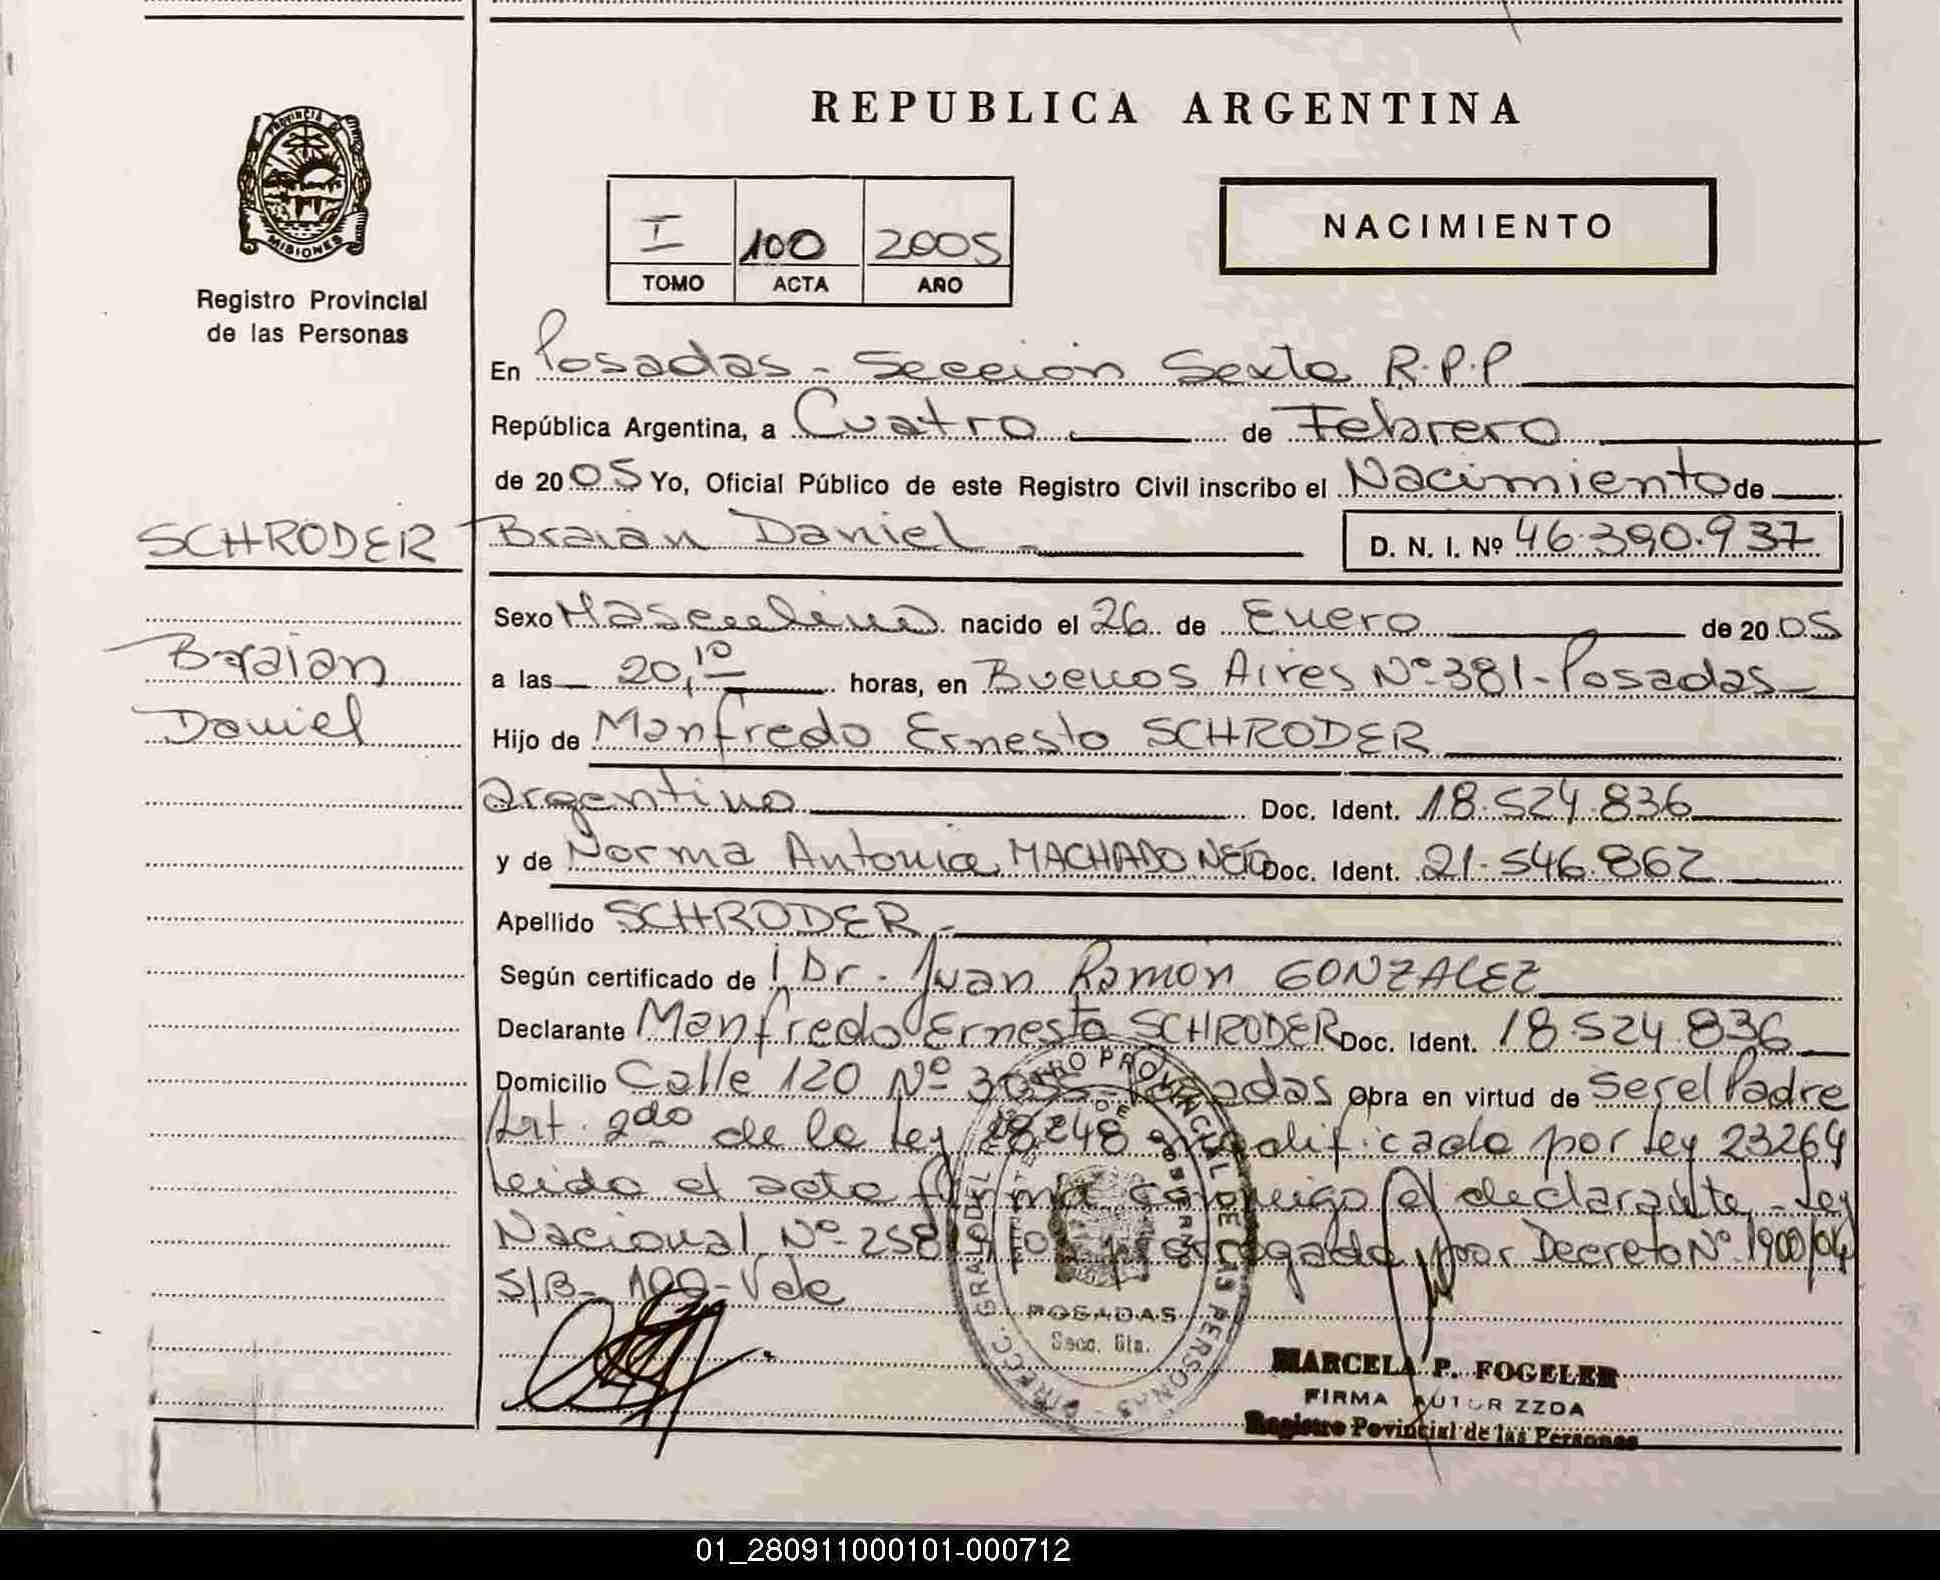 REPUBLICA ARGENTINA
PROVINCIA DE
MISIONES
Registro Provincial
de las Personas
I 100 2005
TOMO ACTA AÑO
NACIMIENTO
En Posadas - Sección Sexta R.P.P
República Argentina, a Cuatro de Febrero
de 2005 Yo, Oficial Público de este Registro Civil inscribo el Nacimiento de
SCHRODER
Braian Daniel D. N. I. Nº 46.390.937
Sexo Masculino nacido el 26 de Enero de 2005
Braian
a las 20,10 horas, en Buenos Aires Nº 381 - Posadas
Daniel
Hijo de Manfredo Ernesto SCHRODER
argentino Doc. Ident. 18.524.836
y de Norma Antonia MACHADO NETO Doc. Ident. 21.546.862
Apellido SCHRODER
Según certificado de Dr. Juan Ramon GONZALEZ
Declarante Manfredo Ernesto SCHRODER Doc. Ident. 18.524.836
Domicilio Calle 120 Nº Posadas Obra en virtud de Ser el Padre
Art. 2do de la Ley 18248 modificado por Ley 23264
Leido el acta firma conmigo el declarante - Ley
Nacional Nº 25819 prorrogada por Decreto Nº 1900/04
S/B- 100 - Vale
REGISTRO PROVINCIAL DE LAS PERSONAS
POSADAS
Secc. 6ta.
MARCELA P. FOGELER
FIRMA AUTORIZZDA
Registro Povincial de las Personas
01_280911000101-000712